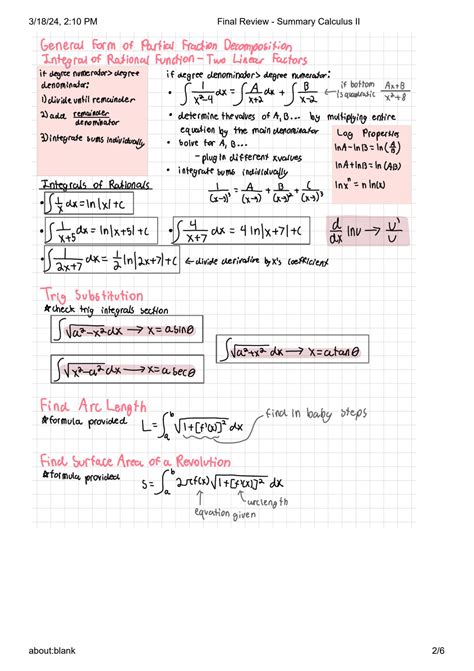 3/18/24, 2:10 PM
Final Review - Summary Calculus II
General Form of Partial Fraction Decomposition
Integral of Rational Function - Two Linear Factors
if degree numerator > degree
denominator:
1) divide until remainder
2) add remainder/denominator
3) integrate sums individually
if degree denominator > degree numerator:
• ∫ 1/(x²-4) dx = ∫ A/(x+2) dx + ∫ B/(x-2) ← if bottom is quadratic (Ax+B)/(x²+8)
• determine the values of A, B... by multiplying entire
equation by the main denominator
• solve for A, B...
- plug in different x values
• integrate sums individually
1/(x-3)³ = A/(x-3) + B/(x-3)² + C/(x-3)³
Log Properties
lnA - lnB = ln(A/B)
lnA + lnB = ln(AB)
lnxⁿ = n ln(x)
Integrals of Rationals
• ∫ 1/x dx = ln|x| + C
• ∫ 1/(x+5) dx = ln|x+5| + C
• ∫ 4/(x+7) dx = 4 ln|x+7| + C
d/dx lnu → u'/u
• ∫ 1/(2x+7) dx = 1/2 ln|2x+7| + C ← divide derivative by x's coefficient
Trig Substitution
* check trig integrals section
∫ √(a²-x²) dx → x = a sinθ
∫ √(a²+x²) dx → x = a tanθ
∫ √(x²-a²) dx → x = a secθ
Find Arc Length
* formula provided L = ∫ₐᵇ √(1+[f'(x)]²) dx find in baby steps
Find Surface Area of a Revolution
* formula provided S = ∫ₐᵇ 2πf(x) √(1+[f'(x)]²) dx
equation given
arclength
about:blank
2/6